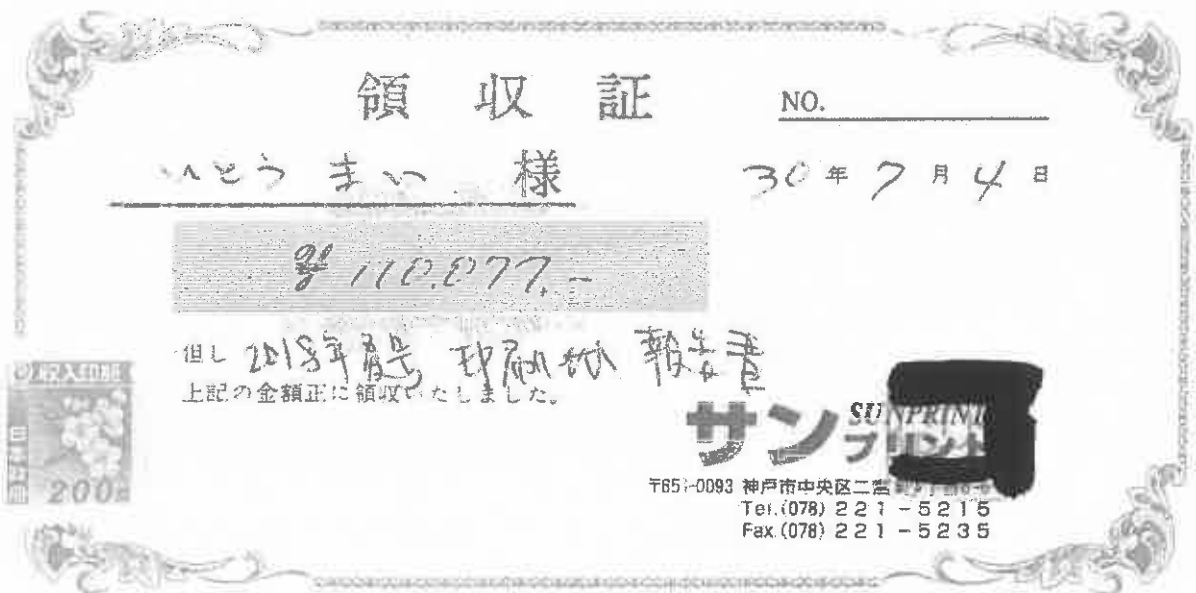 領収証
NO.
いとう まい 様
30年7月4日
¥110,077.-
但し 2018年 印刷 報告書
上記の金額正に領収いたしました。
収入印紙
200円
SUNPRINT
サンプリント
〒651-0093 神戸市中央区二宮町
Tel.(078) 221-5215
Fax.(078) 221-5235